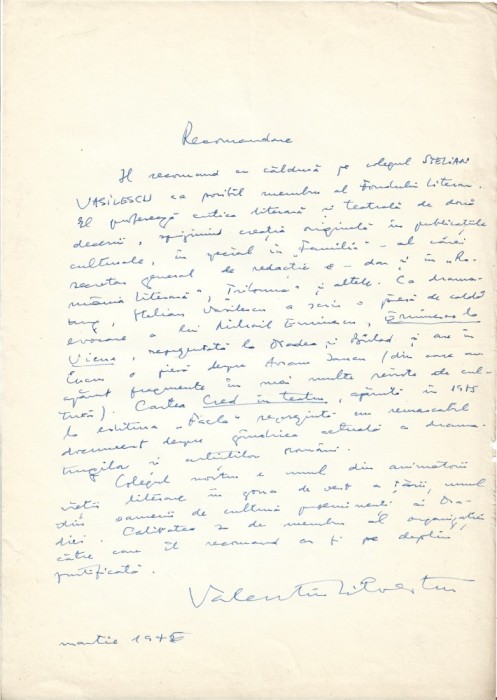 Recomandare
Îl recomand cu căldură pe colegul STELIAN
VASILESCU ca posibil membru al Fondului Literar.
El profesează critica literară și teatrală de două
decenii, sprijinind creația originală în publicațiile
culturale, în special în „Familia" – al cărei
secretar general de redacție e – dar și în „Ro-
mânia literară", „Tribuna" și altele. Ca drama-
turg, Stelian Vasilescu a scris o piesă de caldă
evocare a lui Mihail Eminescu, Eminescu la
Viena, reprezentată la Oradea și Bârlad și are în
lucru o piesă despre Avram Iancu (din care au
apărut fragmente în mai multe reviste de cul-
tură). Cartea Cred în teatru, apărută în 1975
la editura „Facla" reprezintă un remarcabil
document despre gândirea actuală a drama-
turgilor și artiștilor români.
Colegul nostru e unul din animatorii
vieții literare în zona de vest a țării, unul
din oamenii de cultură proeminenți ai Ora-
diei. Calitatea sa de membru al organizației
către care îl recomand ar fi pe deplin
justificată.
Valentin Silvestru
martie 197